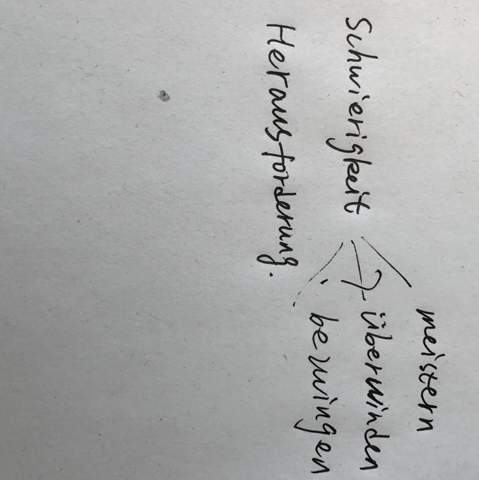 meistern
Schwierigkeit
überwinden
Herausforderung.
bezwingen